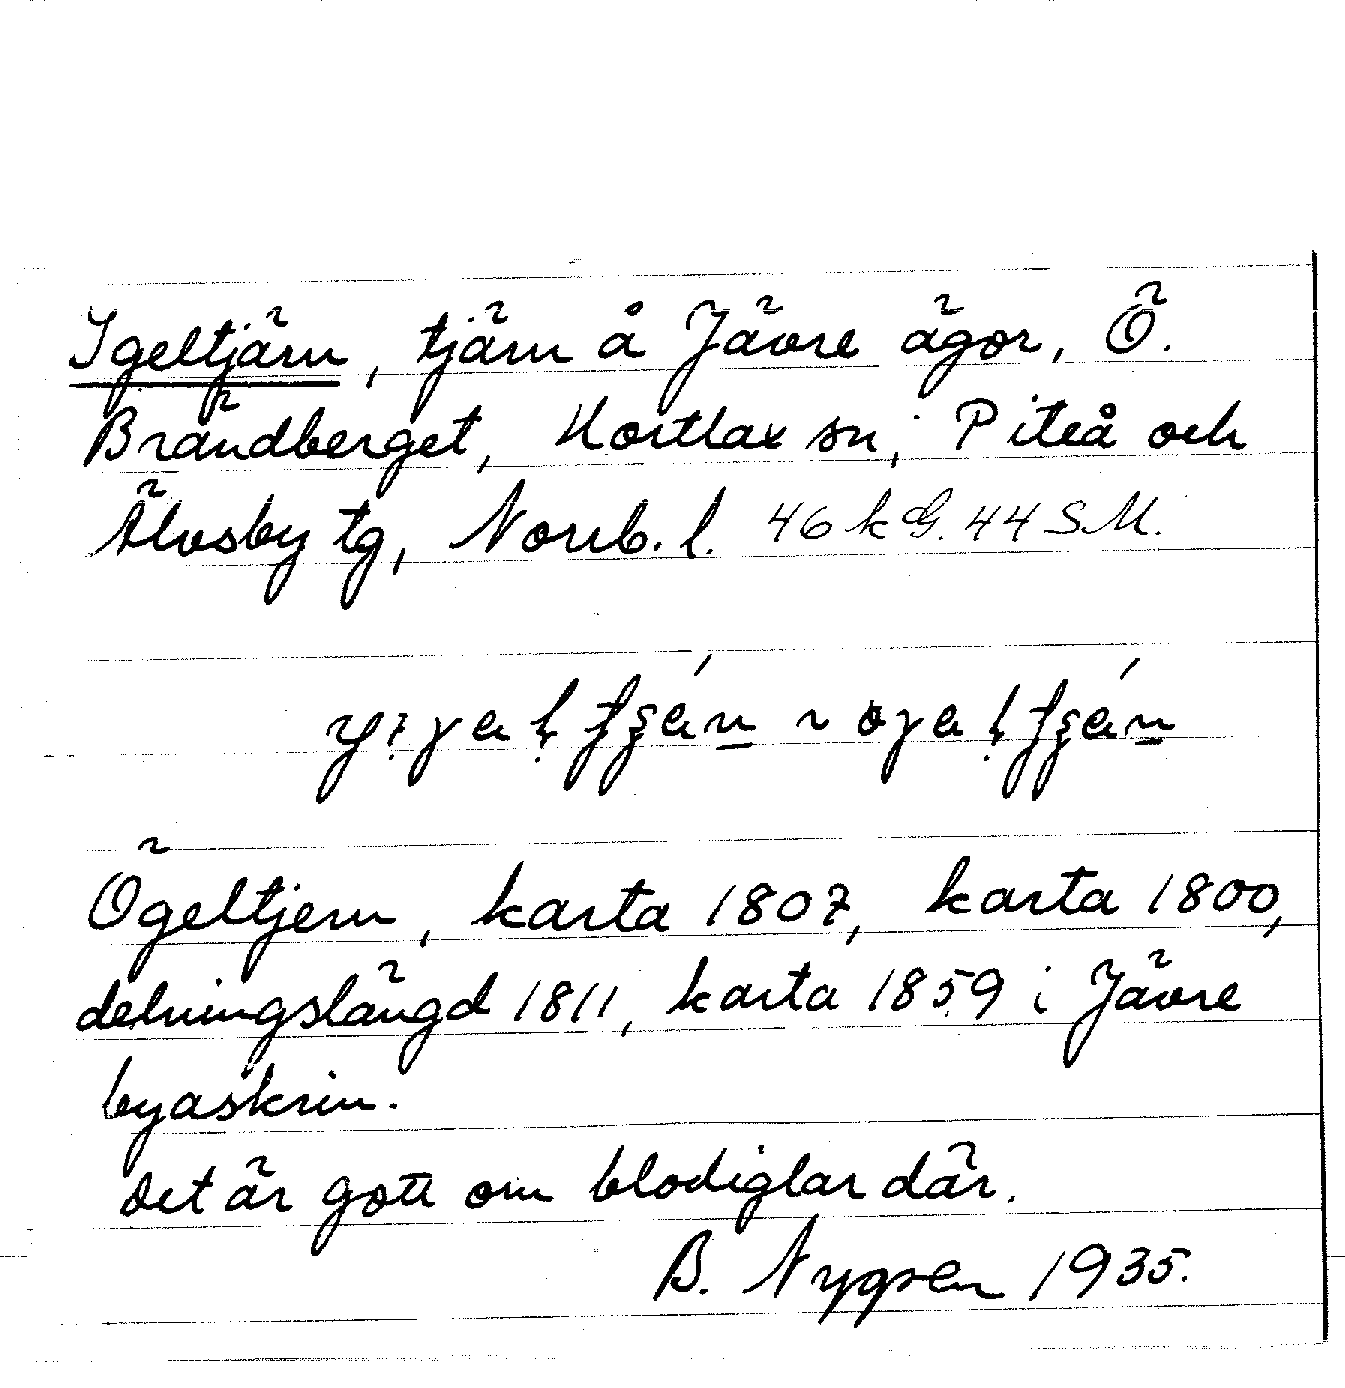 Igeltjärn, tjärn å Jävre ägor, Ö.
Brändberget, Hortlax sn, Piteå och
Älvsby tg, Norrb. l. 46 k G. 44 SM.
Ögeltjern, karta 1807, karta 1800,
delningslängd 1811, karta 1859 i Jävre
byaskrin.
Det är gott om blodiglar där.
B. Nygren 1935.